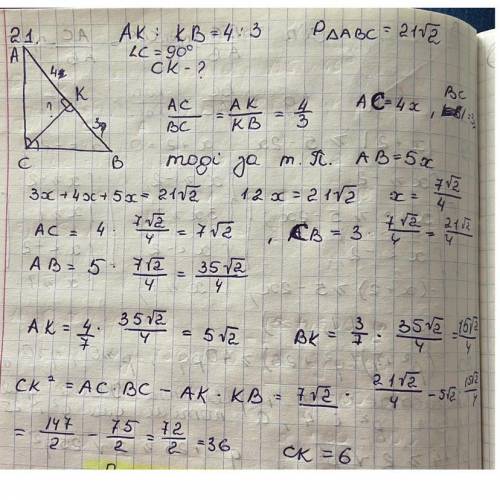 21. AK : KB = 4 : 3 P△ABC = 21√2
∠C = 90°
CK - ?
A
4x
K
?
3x
C B
AC/BC = AK/KB = 4/3 AC = 4x, BC
тоді за т. П. AB = 5x
3x + 4x + 5x = 21√2 12x = 21√2 x = 7√2/4
AC = 4 · 7√2/4 = 7√2, CB = 3 · 7√2/4 = 21√2/4
AB = 5 · 7√2/4 = 35√2/4
AK = 4/7 · 35√2/4 = 5√2 BK = 3/7 · 35√2/4 = 15√2/4
CK² = AC · BC − AK · KB = 7√2 · 21√2/4 − 5√2 · 15√2/4
= 147/2 − 75/2 = 72/2 = 36 CK = 6